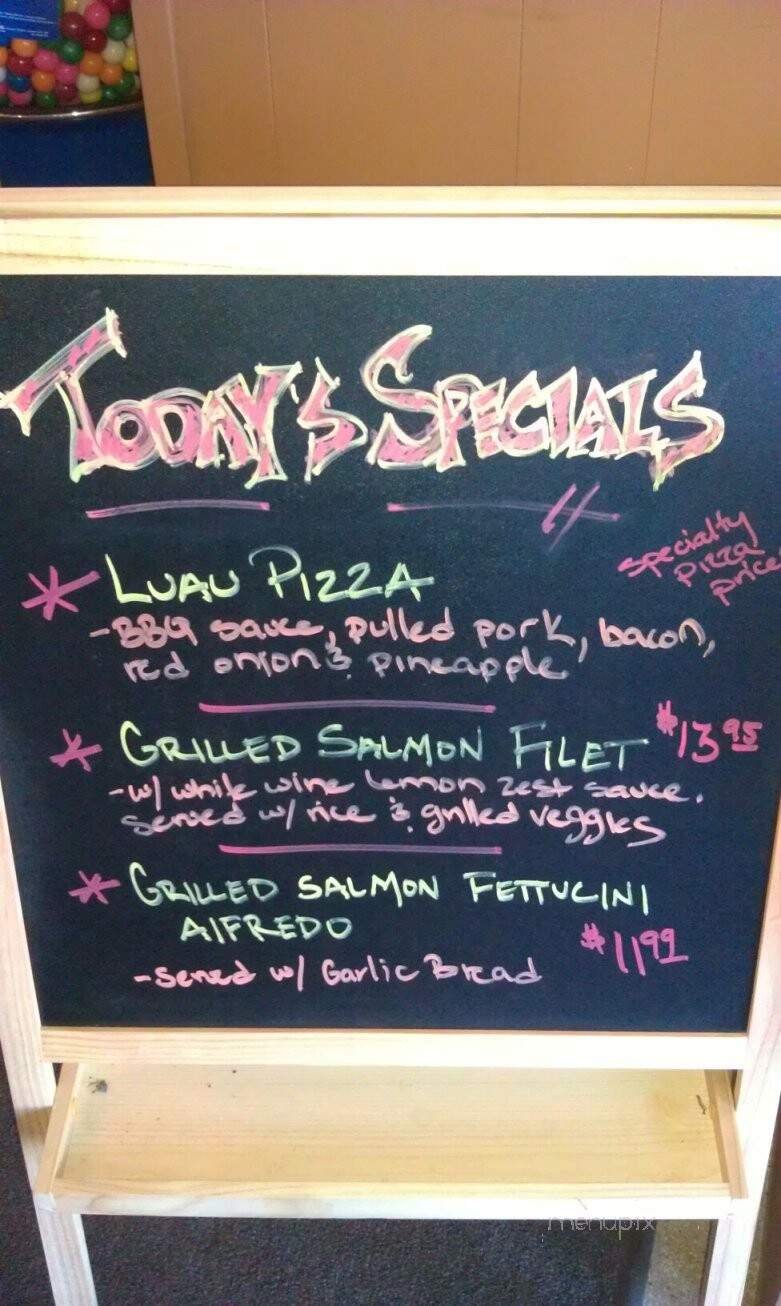 TODAY'S SPECIALS
specialty
pizza
price
* LUAU PIZZA
-BBQ sauce, pulled pork, bacon,
red onion & pineapple
* GRILLED SALMON FILET $13.95
-w/ white wine lemon zest sauce.
served w/ rice & grilled veggies
* GRILLED SALMON FETTUCINI
AlFREDO $11.99
-served w/ Garlic Bread
menupix